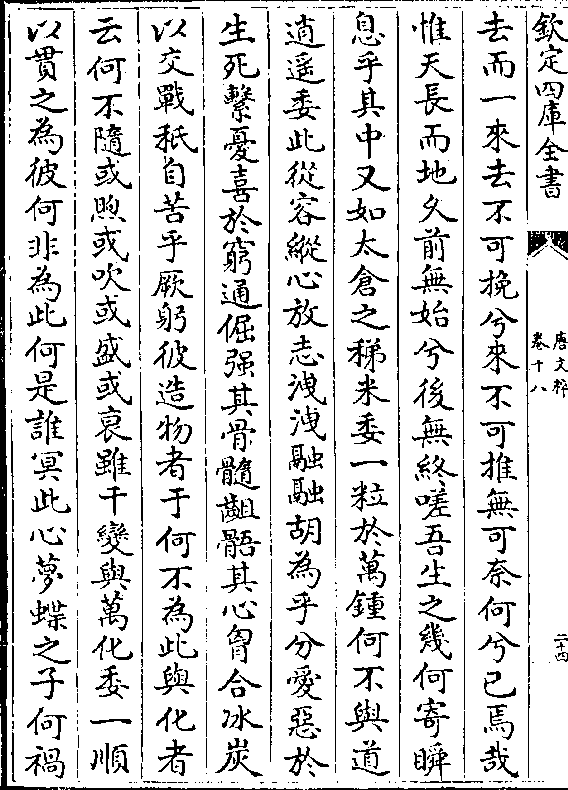 欽定四庫全書
唐文粹
卷十八
二十四
去而一來去不可挽兮來不可推無可奈何兮已焉哉
惟天長而地久前無始兮後無終嗟吾生之幾何寄瞬
息乎其中又如太倉之稊米委一粒於萬鍾何不與道
逍遥委此從容縱心放志洩洩融融胡為乎分愛惡於
生死繫憂喜於窮通倔强其骨髓齟齬其心胷合冰炭
以交戰秖自苦乎厥躬彼造物者于何不為此與化者
云何不隨或喣或吹或盛或衰雖千變與萬化委一順
以貫之為彼何非為此何是誰冥此心夢蝶之子何禍